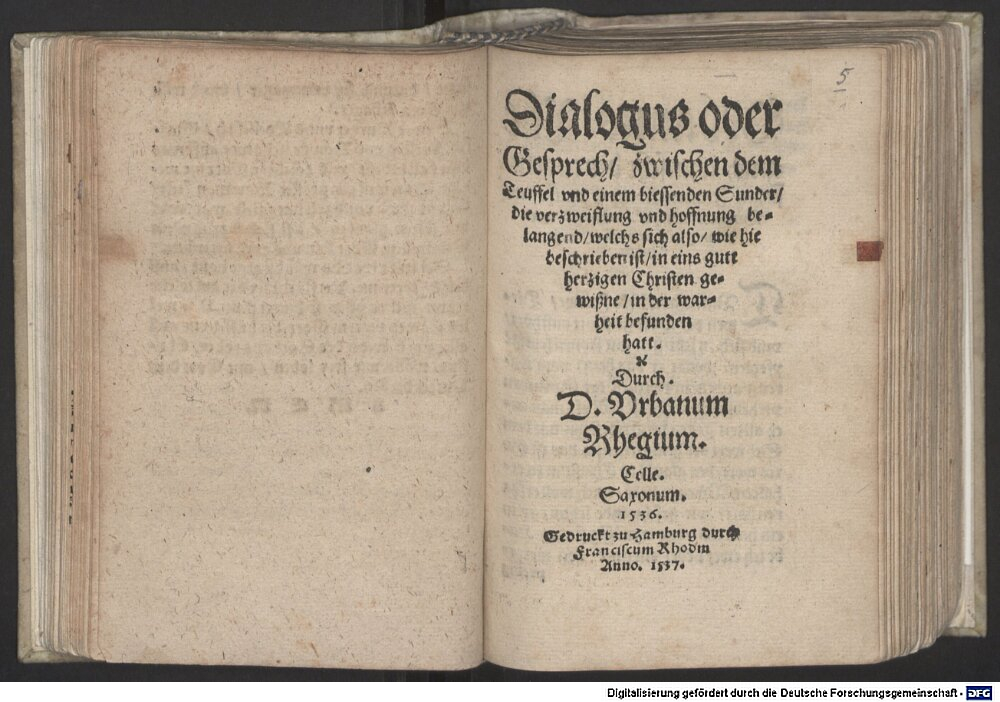 5
Dialogus oder
Gesprech/ zwischen dem
Teuffel vnd einem biessenden Sunder/
die verzweiflung vnd hoffnung be-
langend/welchs sich also/ wie hie
beschrieben ist/in eins gutt
herzigen Christen ge-
wißne/in der war-
heit befunden
hatt.
Durch.
D. Vrbanum
Rhegium.
Celle.
Saxonum.
1536.
Gedruckt zu Hamburg durch
Franciscum Rhodin
Anno. 1537.
Digitalisierung gefördert durch die Deutsche Forschungsgemeinschaft - DFG